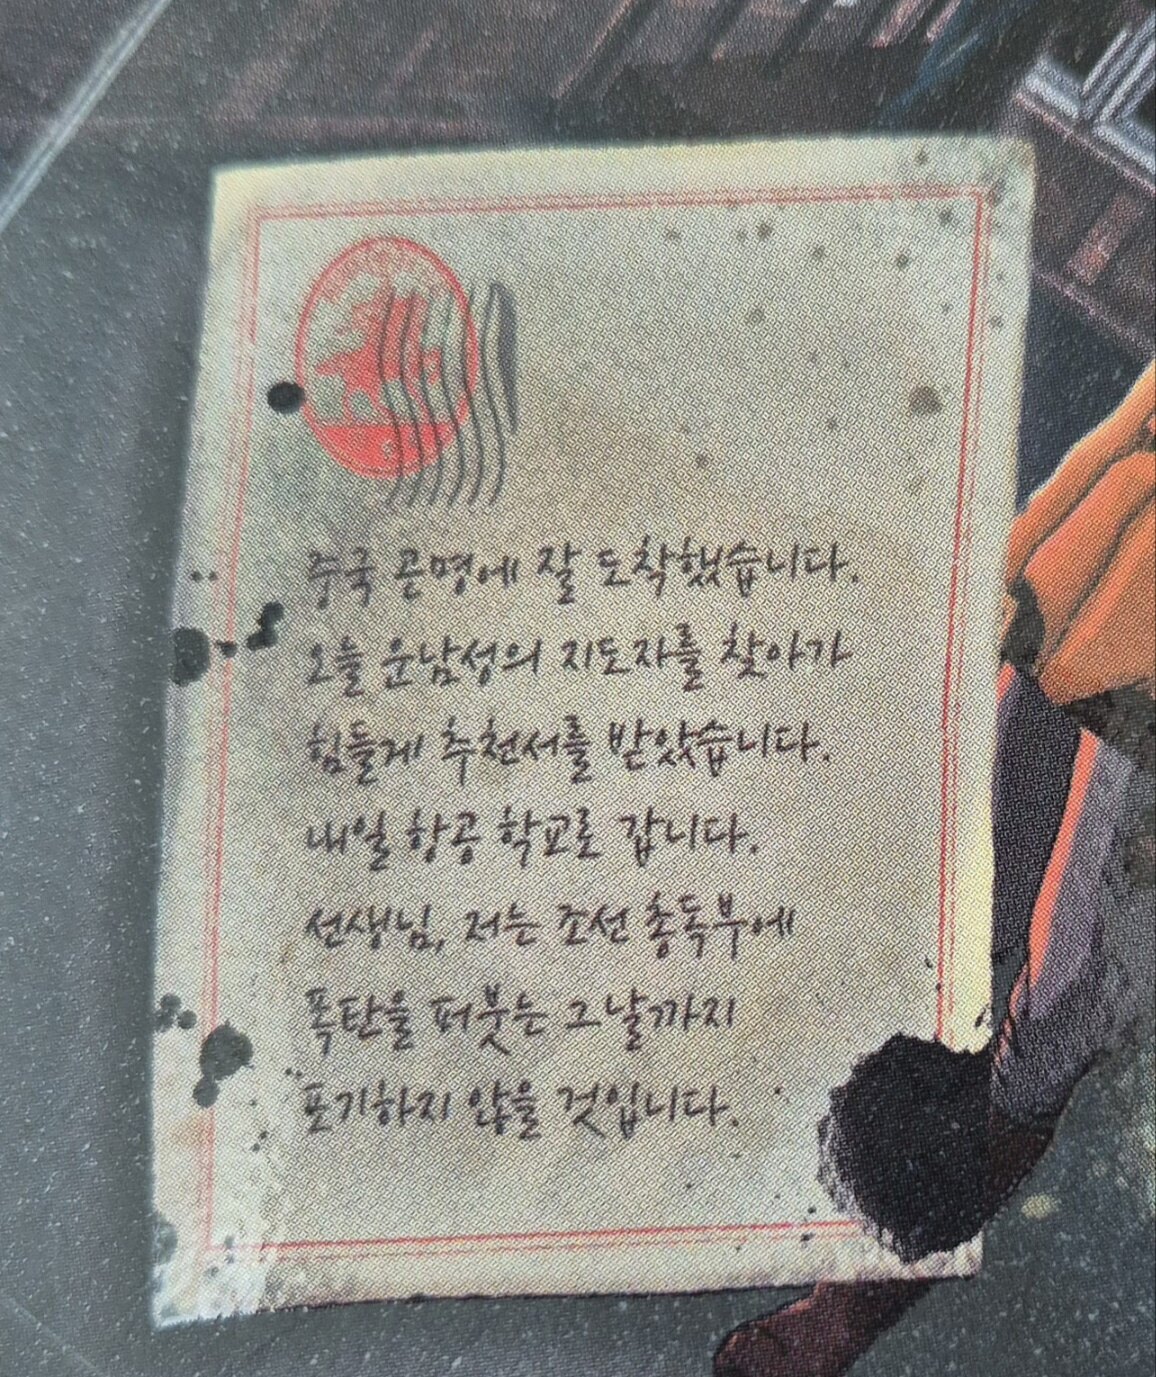 중국 곤명에 잘 도착했습니다.
오늘 운남성의 지도자를 찾아가
힘들게 추천서를 받았습니다.
내일 항공 학교로 갑니다.
선생님, 저는 조선 총독부에
폭탄을 퍼붓는 그날까지
포기하지 않을 것입니다.